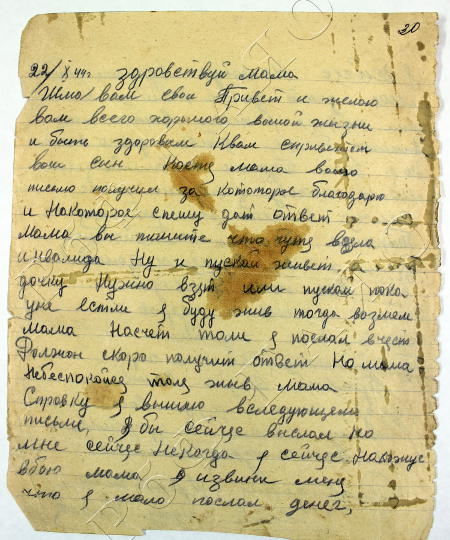 20
22/X 44г здравствуй мама
Шлю вам свой Привет и желаю
вам всего хорошого вашой жизни
и быть здоровым Квам справетом
ваш сын Костя мама вашо
письмо получил за Которое благодарю
и Накоторое спешу дат ответ
мама вы пишите что чутя взяла
инвалида Ну и пускай живет
дочку Нужно взят или пускай пока
уже естли я буду жив тогда возмем
мама Насчет толи я послал вчаст
Должон скоро получит ответ Но мама
Небеспокойся толя жыв, мама
Справку я вышлю вследующем
письми, Я бы сейчас выслал Но
мне сейчас Некогда я сейчас Нахожус
вбою мама Я извини меня
что я мало послал денег,